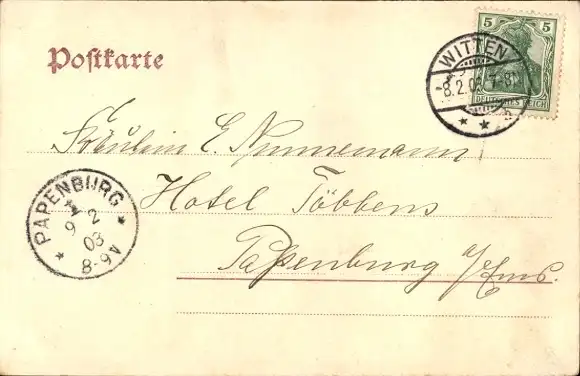 Postkarte
5 5
DEUTSCHES REICH
WITTEN
-8.2.03 7-8
Fräulein E. Nunnemann
Hotel Többens
Papenburg a/Ems.
PAPENBURG
9 2
03
8-9 A